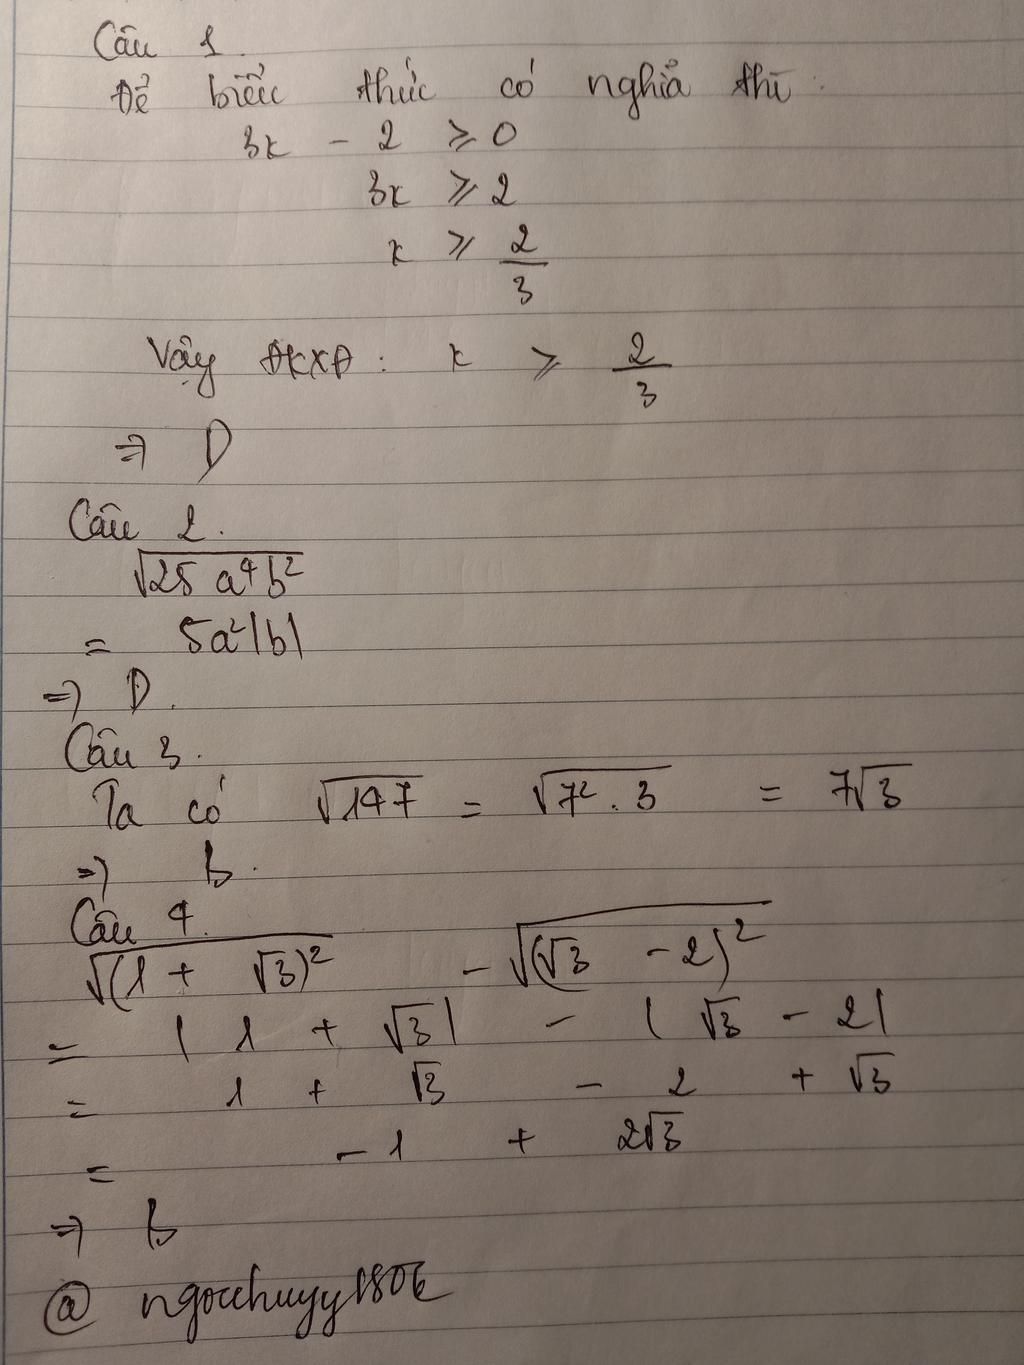 Câu 1.
Để biểu thức có nghĩa thì:
3x - 2 ⩾ 0
3x ⩾ 2
x ⩾ 2/3
Vậy ĐKXĐ: x ⩾ 2/3
⇒ D
Câu 2.
√(25a⁴b²)
= 5a²|b|
⇒ D.
Câu 3.
Ta có √147 = √(7².3) = 7√3
⇒ B.
Câu 4.
√((1 + √3)²) - √((√3 - 2)²)
= |1 + √3| - |√3 - 2|
= 1 + √3 - 2 + √3
= -1 + 2√3
⇒ B